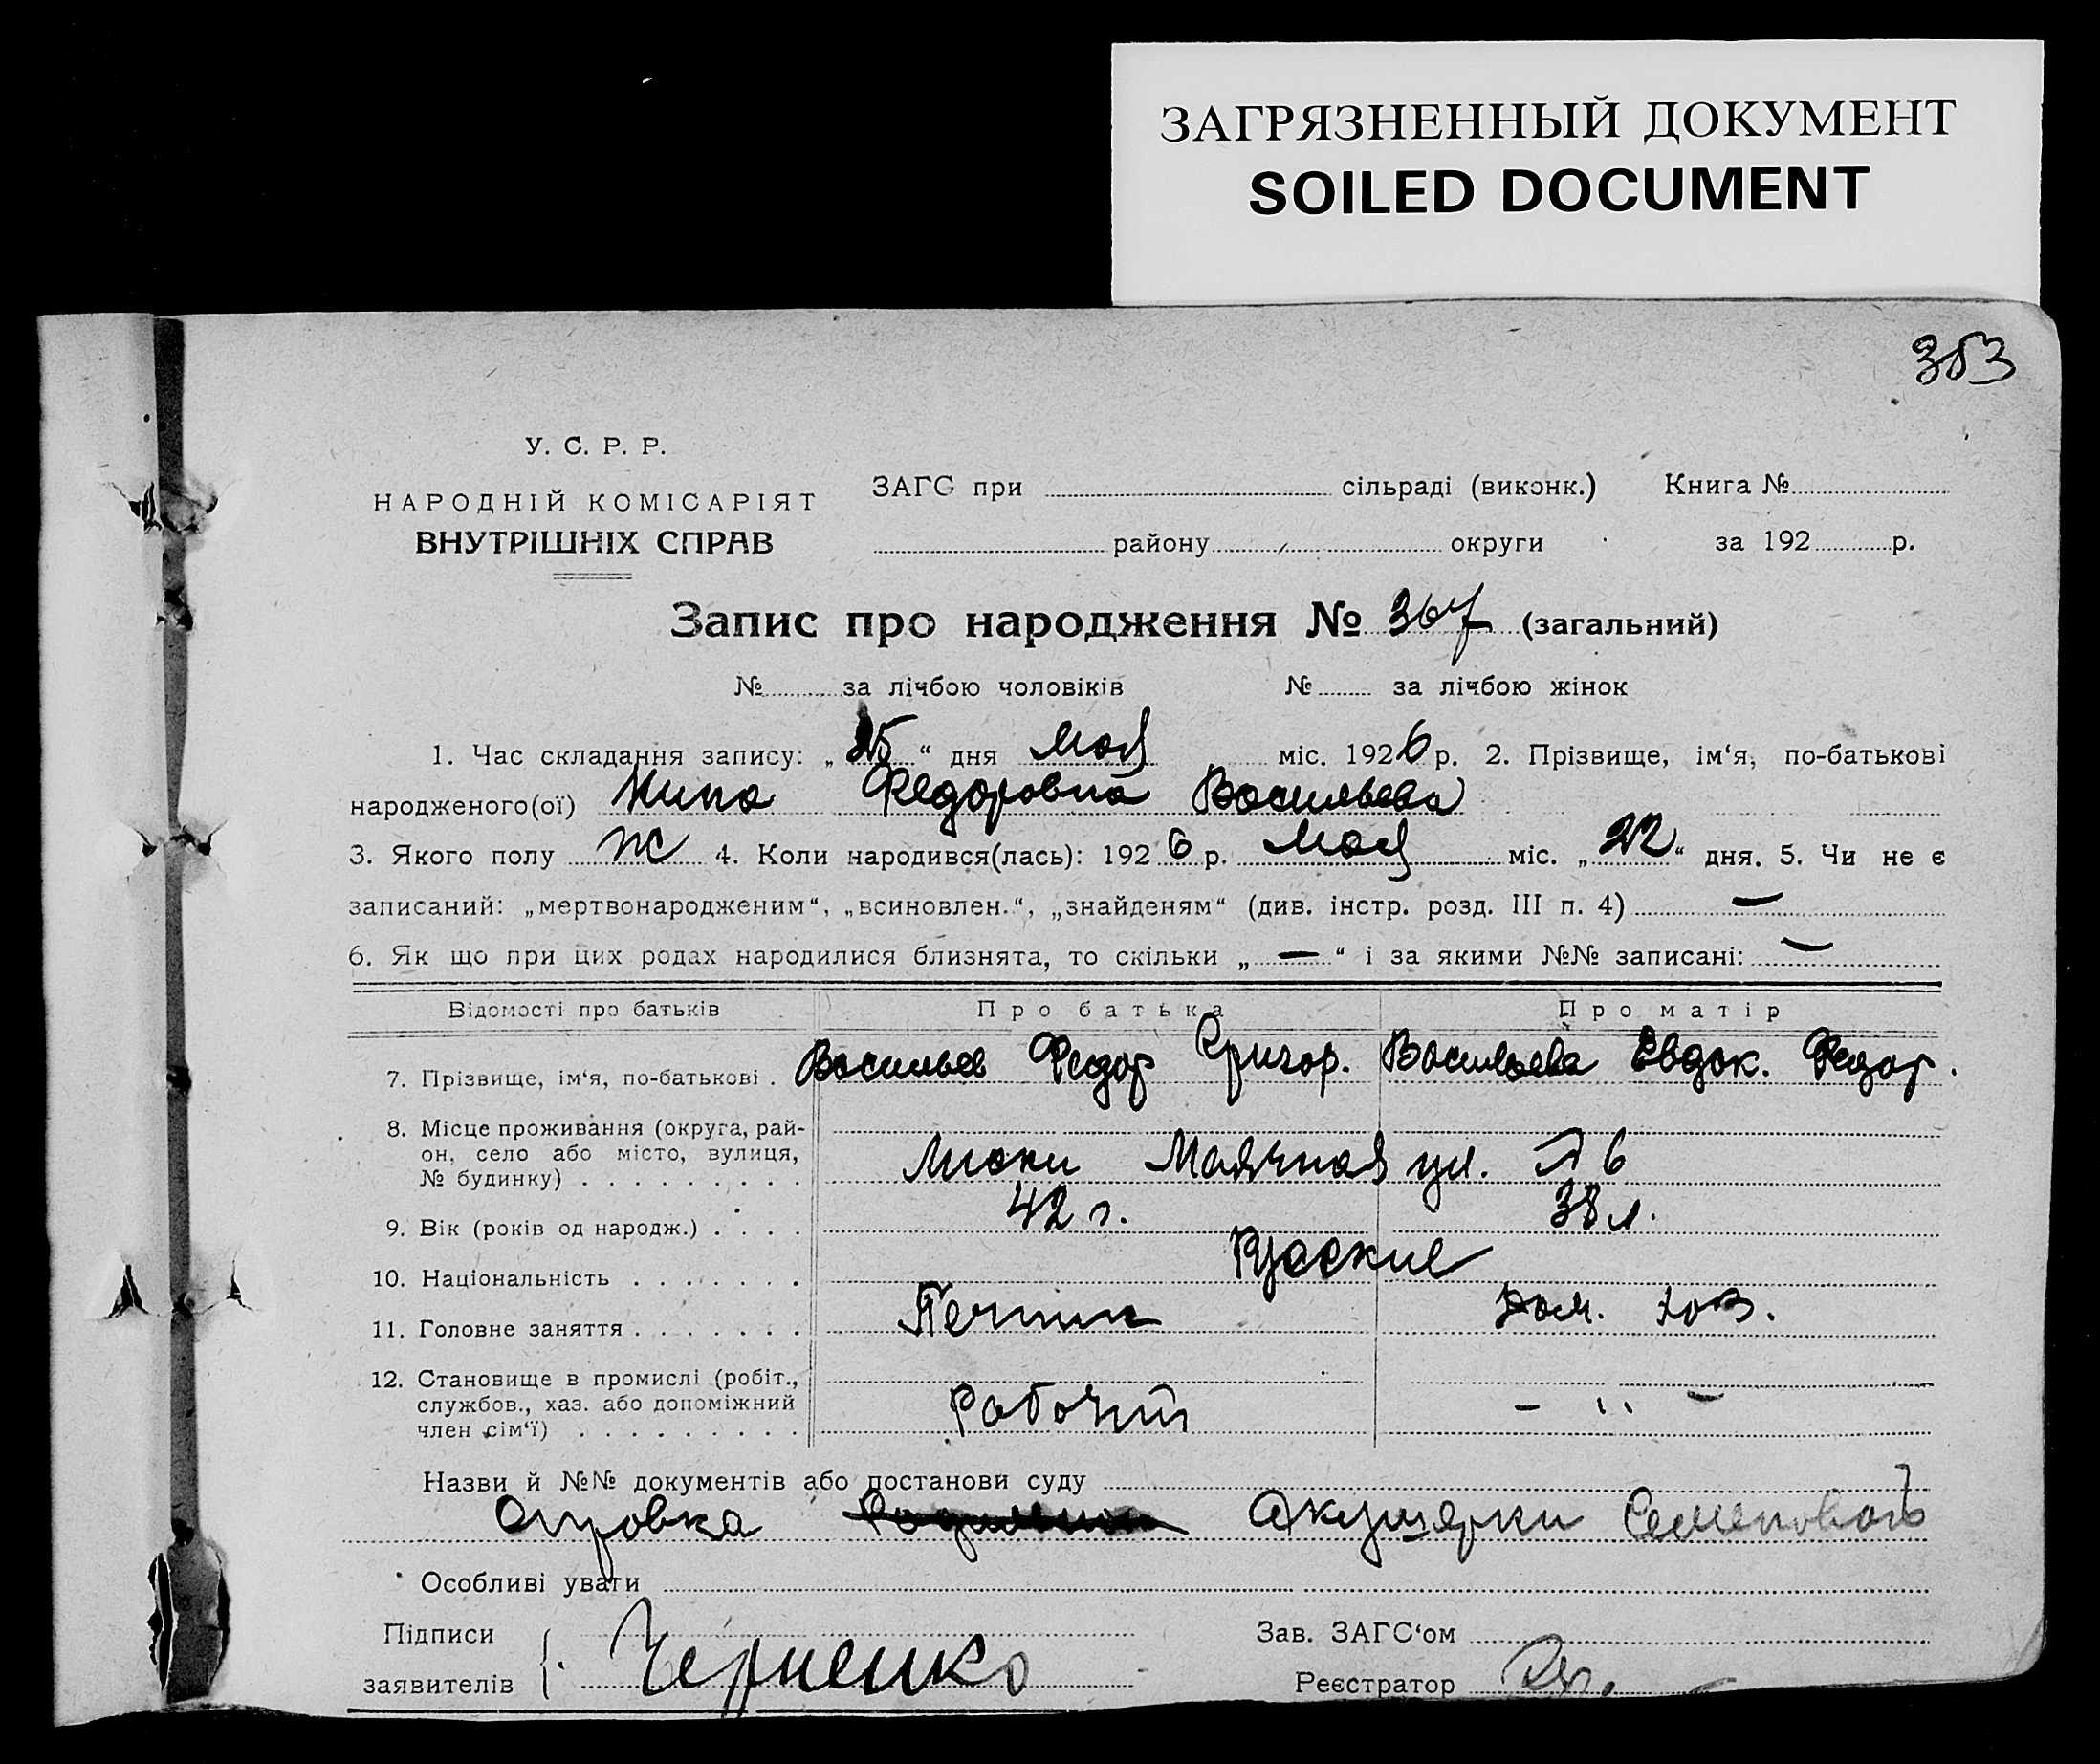 ЗАГРЯЗНЕННЫЙ ДОКУМЕНТ
SOILED DOCUMENT
353
У. С. Р. Р.
НАРОДНІЙ КОМІСАРІЯТ
ВНУТРІШНІХ СПРАВ
ЗАГС при сільраді (виконк.) Книга №
району округи за 192 р.
Запис про народження № 367 (загальний)
№ за лічбою чоловіків № за лічбою жінок
1. Час складання запису: „25“ дня мая міс. 1926 р. 2. Прізвище, ім‘я, по-батькові
народженого(ої) Нина Федоровна Васильева
3. Якого полу ж 4. Коли народився(лась): 1926 р. мая міс. „22“ дня. 5. Чи не є
записаний: „мертвонародженим“, „всиновлен.“, „знайденям“ (див. інстр. розд. III п. 4) —
6. Як що при цих родах народилися близнята, то скільки „—“ і за якими №№ записані: —
Відомості про батьків Про батька Про матір
7. Прізвище, ім‘я, по-батькові . Васильев Федор Григор. Васильева Евдок. Федор.
8. Місце проживання (округа, рай-
он, село або місто, вулиця,
№ будинку) . . . . . . . . . Маячная ул. 6
9. Вік (років од народж.) . . . . 42 г. 38 л.
10. Національність . . . . . . . Русские
11. Головне заняття . . . . . . . Печник Дом. хоз.
12. Становище в промислі (робіт.,
службов., хаз. або допоміжний
член сім‘ї) . . . . . . . . . Рабочий — „ —
Назви й №№ документів або постанови суду
Справка Акушерки Семеновой
Особливі уваги
Підписи Зав. ЗАГС‘ом
заявителів Черненко Реєстратор